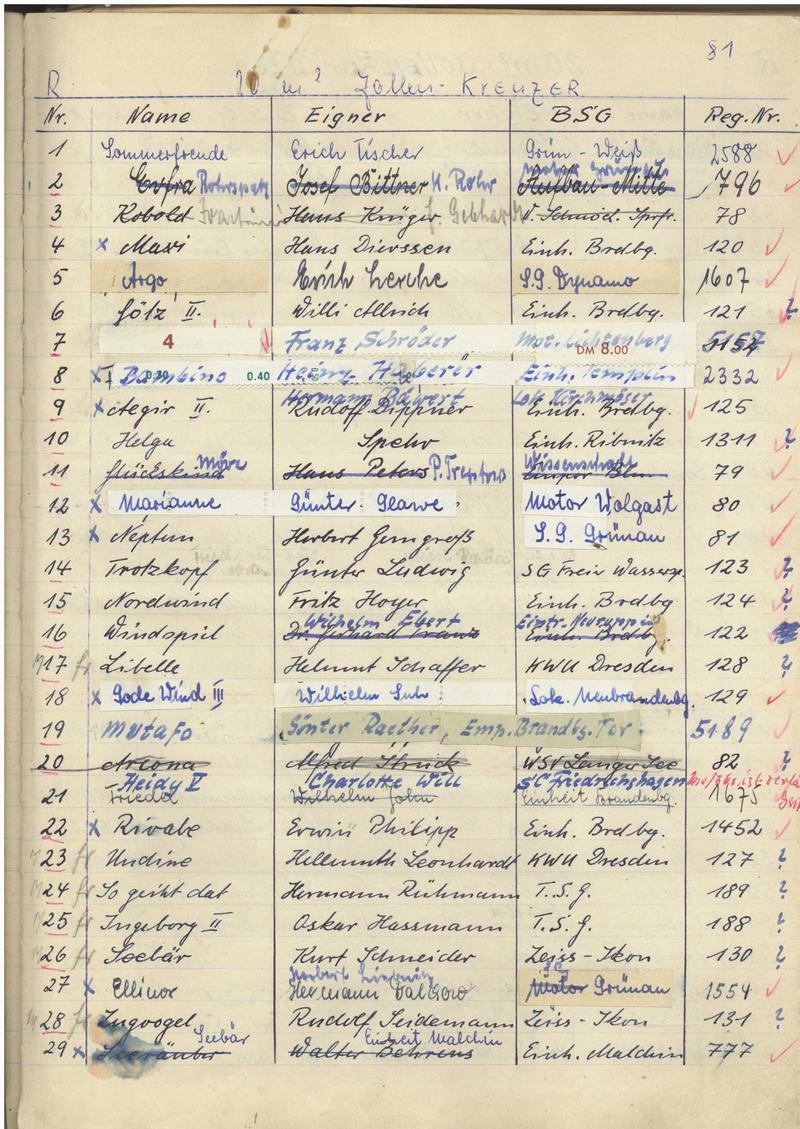 §1
R 20 m² Jollen-Kreuzer
Nr. Name Eigner BSG Reg. Nr.
1 Sommerfreude Erich Tischer Grün-Weiß 2588
2 Evfra Rohrspatz Josef Bittner K. Rohr Aufbau-Mitte 796
3 Kobold Hans Krüger J. Gebhardt V. Schmöd. Spfr. 78
4 x Maxi Hans Dierssen Einh. Brdbg. 120
5 Argo Erich Lerche S.G. Dynamo 1607
6 Götz II. Willi Allrich Einh. Brdbg. 121 ?
7 4 Franz Schröder Mot. Lichtenberg DM 8.00 5157
8 x Bambino 0.30 0.40 Heinz Haberer Einh. Templin 2332
Hermann Bawert Lok Kirchmöser
9 x Aegir II. Rudolf Dippner Einh. Brdbg. 125
10 Helga Spehr Einh. Ribnitz 1311 ?
Möve Wissenschaft
11 Glückskind Hans Peters P. Treptow Empor Bln. 79
12 x Marianne Günter Glawe Motor Wolgast 80
13 x Neptun Herbert Gemgroß S.G. Grünau 81
14 Trotzkopf Günter Ludwig SG Freie Wassersp. 123 ?
15 Nordwind Fritz Hoyer Einh. Brdbg 124 ?
Wilhelm Ebert Eintr. Neuruppin
16 Windspiel Dr. Gerhard Franz Einh. Brdbg. 122
17 fr Libelle Helmut Schaffer KWU Dresden 128 ?
18 x Gode Wind III Wilhelm Suhr Lok. Neubrandenbg. 129
19 Mutafo Günter Raether, Emp. Brandbg. Tor 5189
20 Arcona Alfred Struck WSV Langer See 82 ?
Heidy V Charlotte Will SC Friedrichshagen
21 Friedel Wilhelm John Einheit Brandenbg. 1675
22 x Rivabe Erwin Philipp Einh. Brdbg. 1452
23 fr Undine Hellmuth Leonhardt KWU Dresden 127 ?
24 fr So geiht dat Hermann Rühmann T.S.G. 189 ?
25 fr Ingeborg II Oskar Hassmann T.S.G. 188 ?
26 fr Seebär Kurt Schneider Zeiss-Ikon 130 ?
27 x Ellinor Hermann Dalchow Motor Grünau 1554
28 fr Zugvogel Rudolf Seidemann Zeiss-Ikon 131 ?
Seebär Einheit Malchin
29 x Seeräuber Walter Behrens Einh. Malchin 777